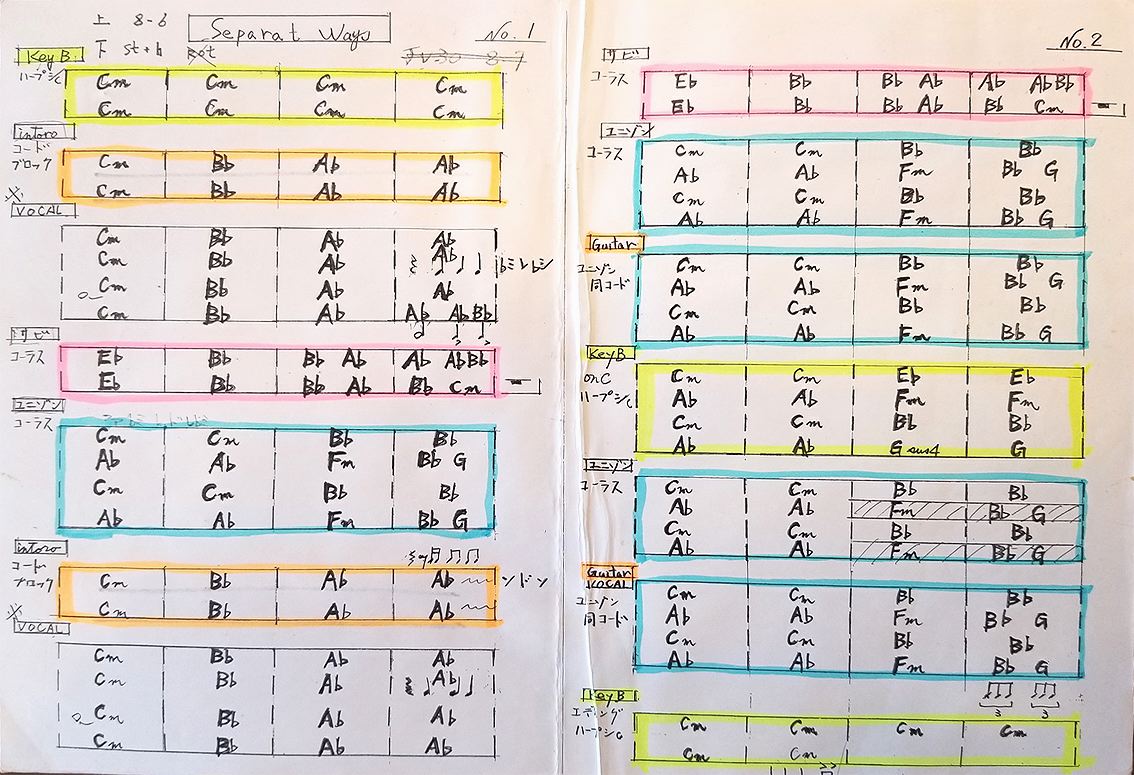 上 8-6
下 st+h
Separat Ways
No. 1
Key B.
ハープシC
Cm Cm Cm Cm
Cm Cm Cm Cm
intoro
コード
ブロック
Cm Bb Ab Ab
Cm Bb Ab Ab
※
VOCAL
Cm Bb Ab Ab
Cm Bb Ab Ab
Cm Bb Ab Ab
Cm Bb Ab Ab AbBb
サビ
コーラス
Eb Bb Bb Ab Ab AbBb
Eb Bb Bb Ab Bb Cm
ユニゾン
コーラス
Cm Cm Bb Bb
Ab Ab Fm Bb G
Cm Cm Bb Bb
Ab Ab Fm Bb G
intoro
コード
ブロック
Cm Bb Ab Ab ンドン
Cm Bb Ab Ab
※
VOCAL
Cm Bb Ab Ab
Cm Bb Ab Ab
Cm Bb Ab Ab
Cm Bb Ab Ab
No. 2
サビ
コーラス
Eb Bb Bb Ab Ab AbBb
Eb Bb Bb Ab Bb Cm
ユニゾン
コーラス
Cm Cm Bb Bb
Ab Ab Fm Bb G
Cm Cm Bb Bb
Ab Ab Fm Bb G
Guitar
ユニゾン
同コード
Cm Cm Bb Bb
Ab Ab Fm Bb G
Cm Cm Bb Bb
Ab Ab Fm Bb G
Key B
onC
ハープシC
Cm Cm Eb Eb
Ab Ab Fm Fm
Cm Cm Bb Bb
Ab Ab Gsus4 G
ユニゾン
コーラス
Cm Cm Bb Bb
Ab Ab Fm Bb G
Cm Cm Bb Bb
Ab Ab Fm Bb G
Guitar
VOCAL
ユニゾン
同コード
Cm Cm Bb Bb
Ab Ab Fm Bb G
Cm Cm Bb Bb
Ab Ab Fm Bb G
3 3
Key B
エンディング
ハープシC
Cm Cm Cm Cm
Cm Cm